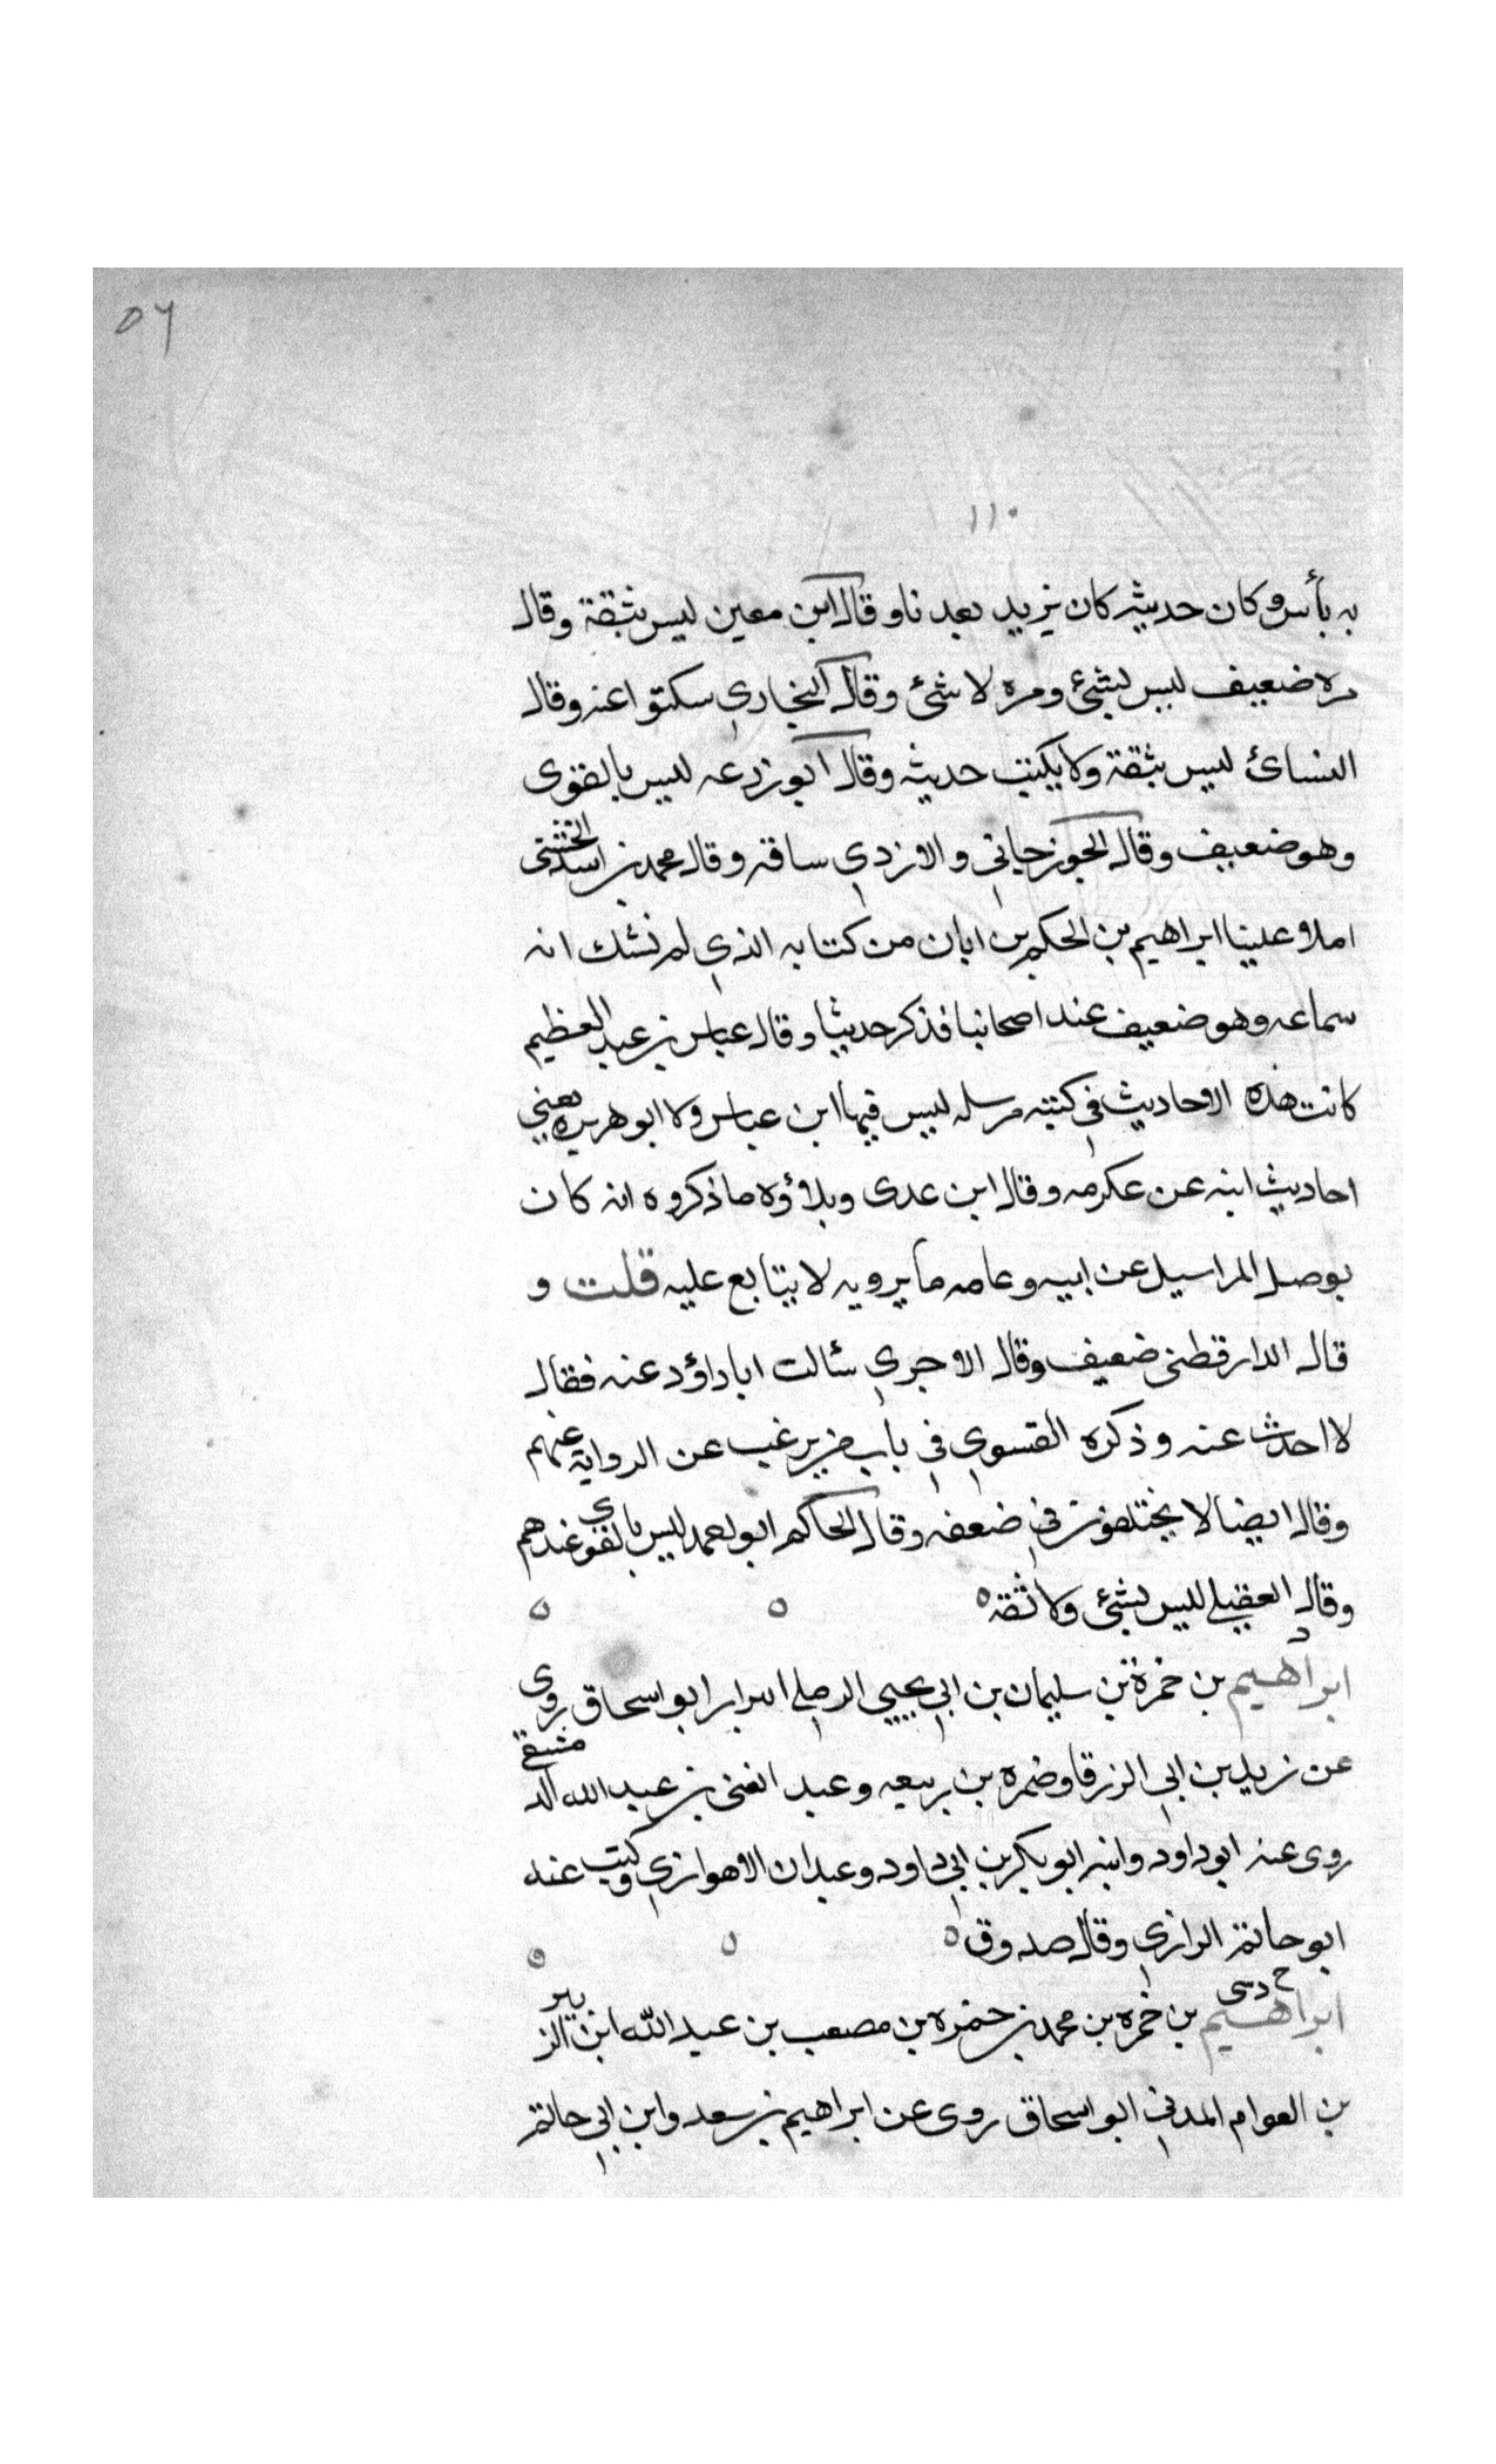 ٥٦
١١٠
به بأس وكان حديثه كان يزيد بعد ناو قال ابن معين ليس بثقة وقال
مره ضعيف ليس بشئ ومره لا شئ وقال البخاري سكتوا عنه وقال
النسائ ليس بثقة ولا يكتب حديثه وقال ابو زرعه ليس بالقوى
وهو ضعيف وقال الجوزجاني والازدي ساقة وقال محمد بن اسد الخشنى
املا علينا ابراهيم بن الحكم بن ابان من كتابه الذي لم نشك انه
سماعه وهو ضعيف عند اصحابنا فذكر حديثا وقال عباس بن عبد العظيم
كانت هذه الاحاديث في كتبه مرسله ليس فيها ابن عباس ولا ابو هريره يعني
احاديث ابيه عن عكرمه وقال ابن عدى وبلاؤه ما ذكروه انه كان
يوصل المراسيل عن ابيه وعامه ما يرويه لا يتابع عليه قلت و
قال الدارقطنى ضعيف وقال الاجري سألت ابا داؤد عنه فقال
لا احدث عنه وذكره الفسوي في باب من يرغب عن الرواية عنهم
وقال ايضا لا يختلفون في ضعفه وقال الحاكم ابو احمد ليس بالقوي عندهم
وقال العقيلي ليس بشئ ولا ثقه ه ه ه
د
ابراهيم بن حمزة بن سليمان بن ابي يحيي الرملي البزار ابو اسحاق روى
عن زيد بن ابي الزرقا وضمره بن ربيعه وعبد الغنى بن عبد الله الدمشقي
روى عنه ابو داود وابنه ابو بكر بن ابي داود وعبدان الاهوازي وكتب عنه
ابو حاتم الرازي وقال صدوق ه ه ه
خ د سى
ابراهيم بن حمزه بن محمد بن حمزه بن مصعب بن عبد الله ابن الزبير
بن العوام المدني ابو اسحاق روى عن ابراهيم بن سعد وابن ابي حاتم